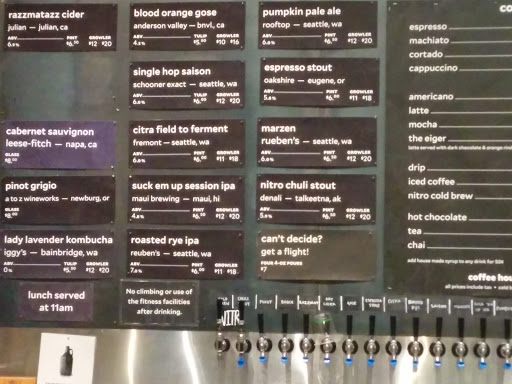 razzmatazz cider
julian — julian, ca
ABV PINT GROWLER
6.9% $6.50 $12 $20
cabernet sauvignon
leese-fitch — napa, ca
GLASS
pinot grigio
a to z wineworks — newburg, or
GLASS
lady lavender kombucha
iggy's — bainbridge, wa
ABV TULIP GROWLER
0% $5.50 $12 $20
lunch served
at 11am
blood orange gose
anderson valley — bnvl, ca
ABV TULIP GROWLER
4.2% $5.00 $10 $16
single hop saison
schooner exact — seattle, wa
ABV TULIP GROWLER
$12 $20
citra field to ferment
fremont — seattle, wa
ABV PINT GROWLER
$11 $18
suck em up session ipa
maui brewing — maui, hi
ABV PINT GROWLER
$12 $20
roasted rye ipa
reuben's — seattle, wa
ABV PINT GROWLER
$11 $18
No climbing or use of
the fitness facilities
after drinking.
pumpkin pale ale
rooftop — seattle, wa
ABV PINT GROWLER
$12 $20
espresso stout
oakshire — eugene, or
ABV PINT GROWLER
$11 $18
marzen
rueben's — seattle, wa
ABV PINT GROWLER
$12 $20
nitro chuli stout
denali — talkeetna, ak
ABV PINT GROWLER
$12 $20
can't decide?
get a flight!
FOUR 4-OZ POURS
$7
co
espresso
machiato
cortado
cappuccino
americano
latte
mocha
the eiger
latte served with dark chocolate & orange
drip
iced coffee
nitro cold brew
hot chocolate
tea
chai
add house made syrup to any drink for 50¢
coffee hou
all prices include tax
NITR